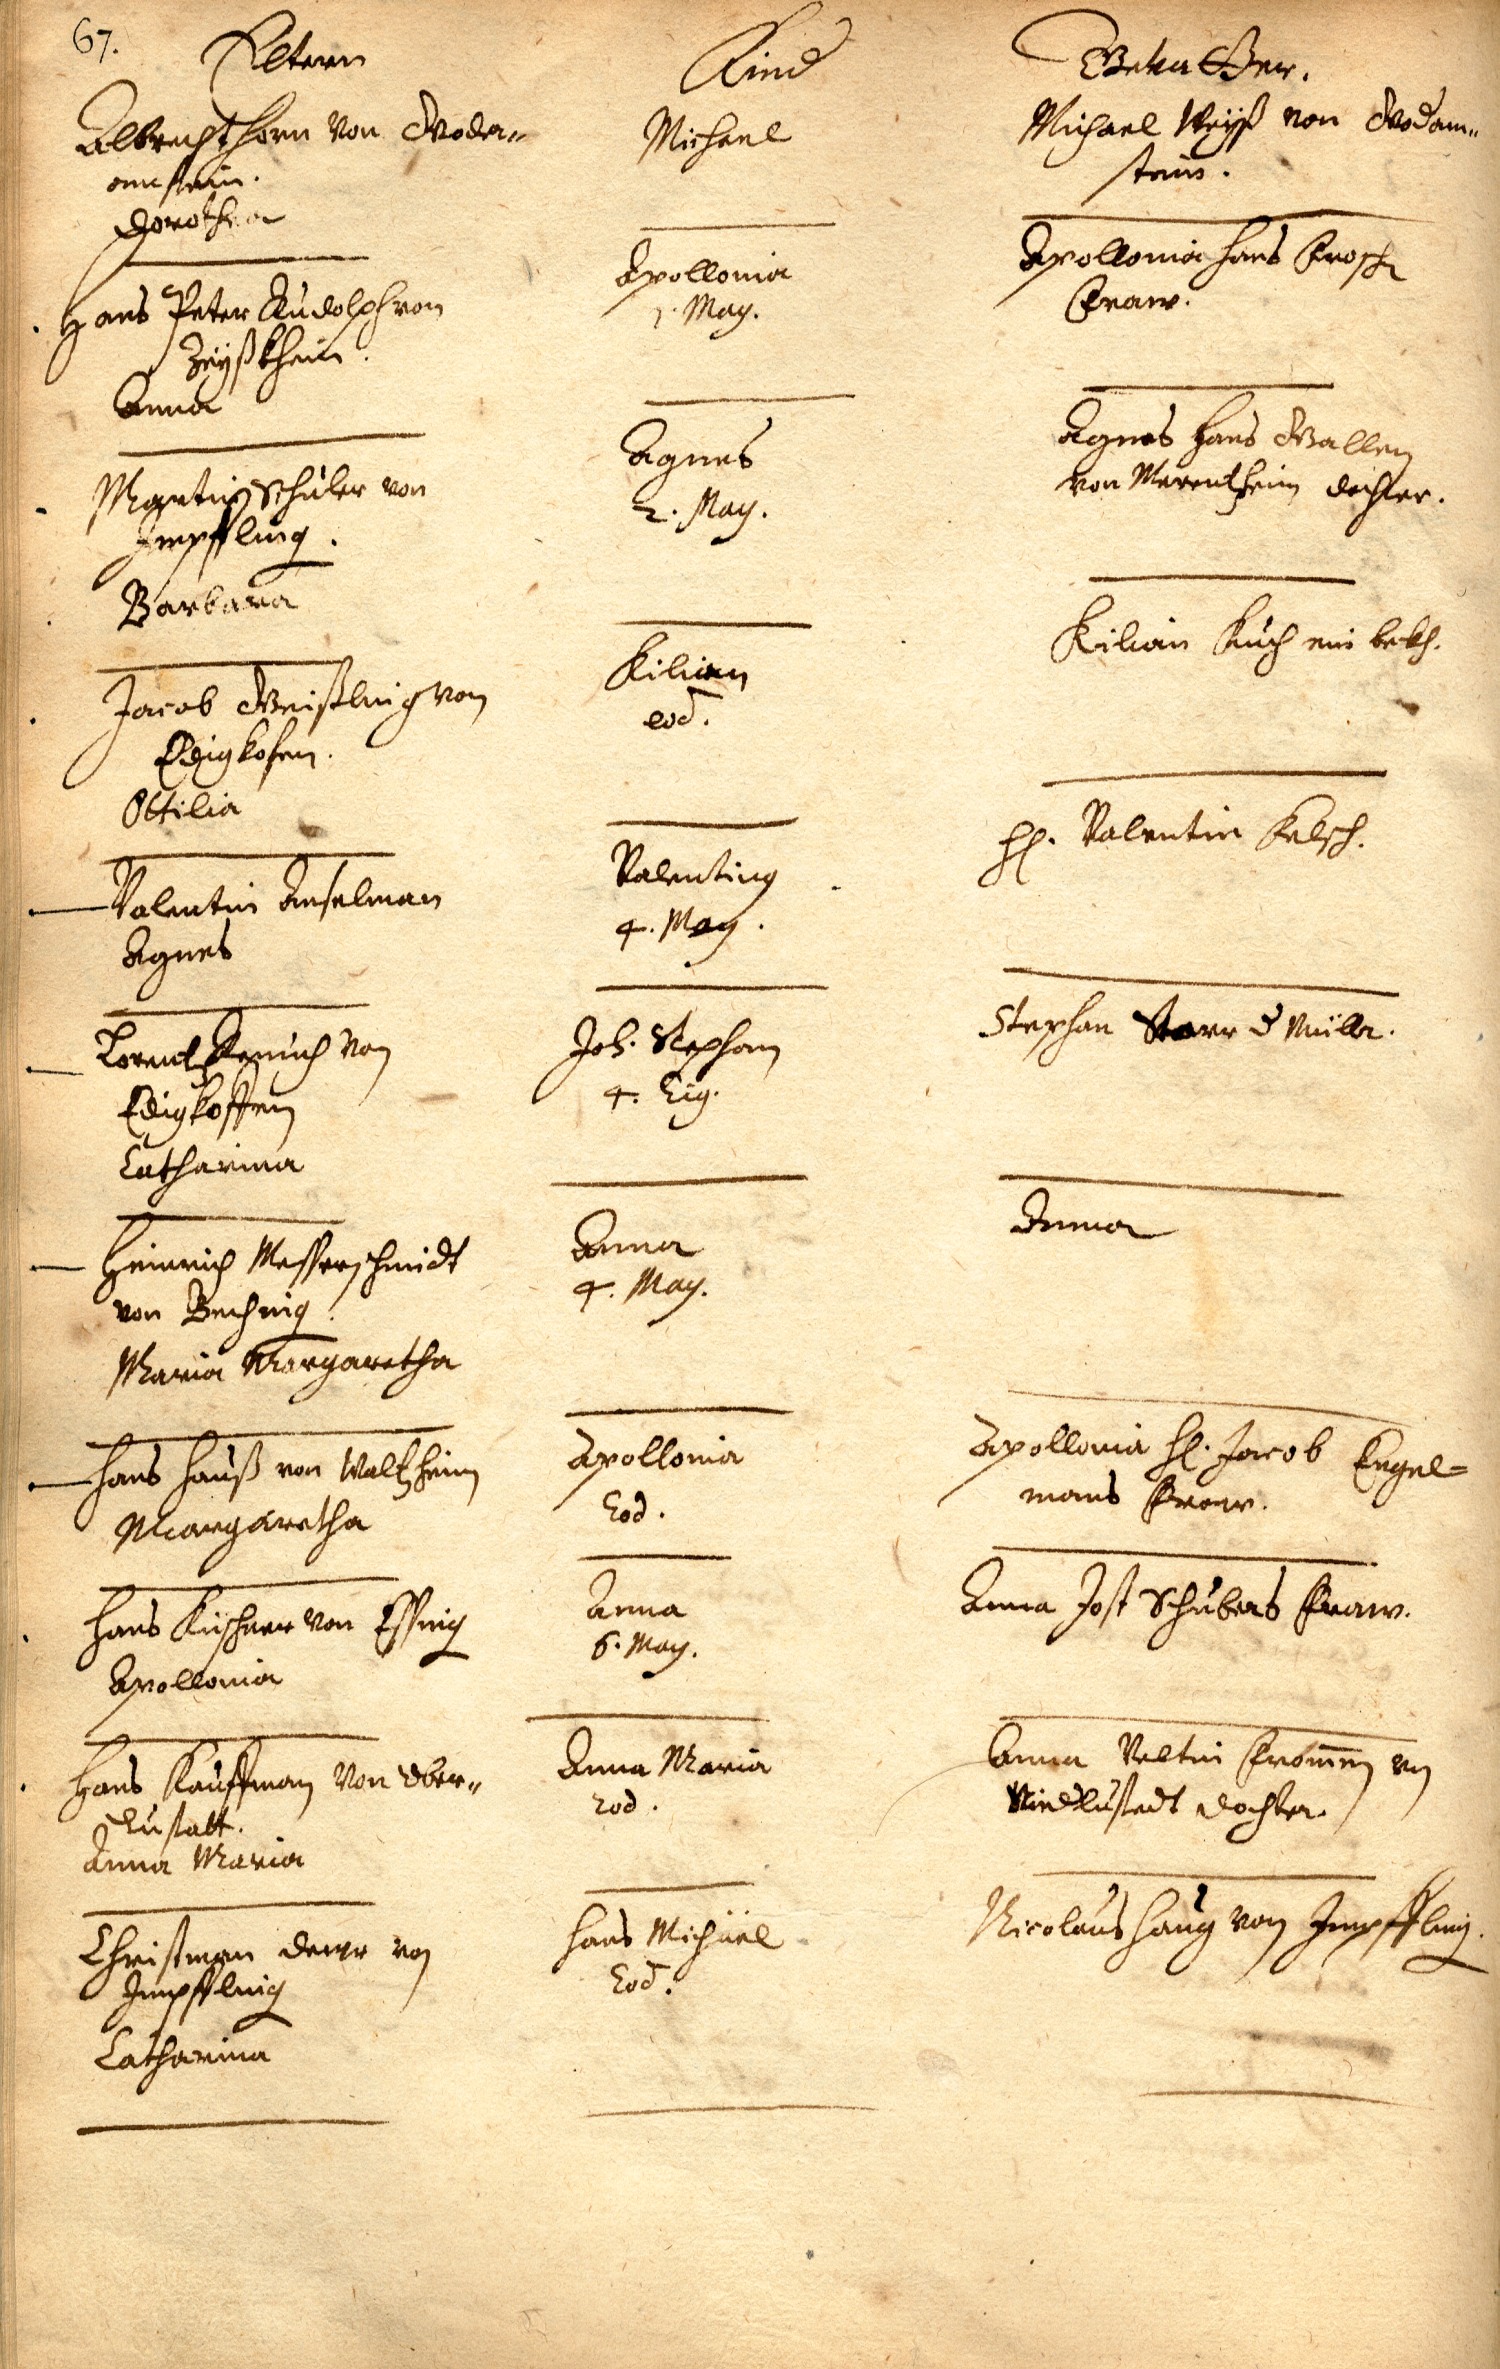 67.
Eltern
Kind
Gevatter.
Albrecht Horn von Woder-
amstein.
Dorothea
Michael
Michael Weyß von Wodam-
stein.
Hans Peter Rudolph von
Zeyßkheim.
Anna
Apollonia
1. May.
Apollonia Hans Frosch
Fraw.
Martin Schuler von
Impffling.
Barbara
Agnes
2. May.
Agnes Hans Wallen
von Merentzheim dochter.
Jacob Weißling von
Edigkofen.
Ottilia
Kilian
eod.
Kilian Kuch ein bekh.
Valentin Anselman
Agnes
Valentin
4. May.
H. Valentin Kelsch.
Lorentz von
Edigkoffen
Catharina
Joh. Stephan
4. Eig.
Stephan Starr d Müller.
Heinrich Messerschmidt
von Beching.
Maria Margaretha
Anna
4. May.
Anna
Hans Hauß von Waltzheim
Margaretha
Apollonia
Eod.
Apollonia H. Jacob Engel=
mans Fraw.
Hans Kirschner von Essing
Apollonia
Anna
6. May.
Anna Jost Schubers Fraw.
Hans Kauffman von Ober-
Lustatt.
Anna Maria
Anna Maria
eod.
Anna Veltin Frommen von
Niedlustadt dochter.
Christman von
Impffling
Catharina
Hans Michael
Eod.
Nicolaus Haug von Impffling.